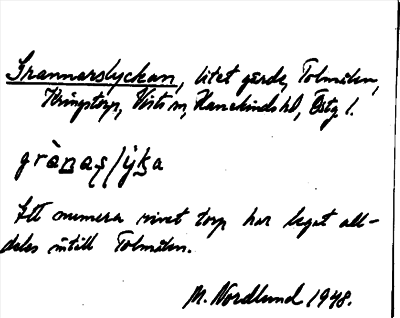 Grannarslyckan, litet gärde, Tolmålen,
Kringstorp, Viste m, Hanekinds hd, Östg l.
gràn̲aʂlỳk̲a
Ett numera rivet torp har legat all-
deles intill Tolmålen.
M. Nordlund 1948.